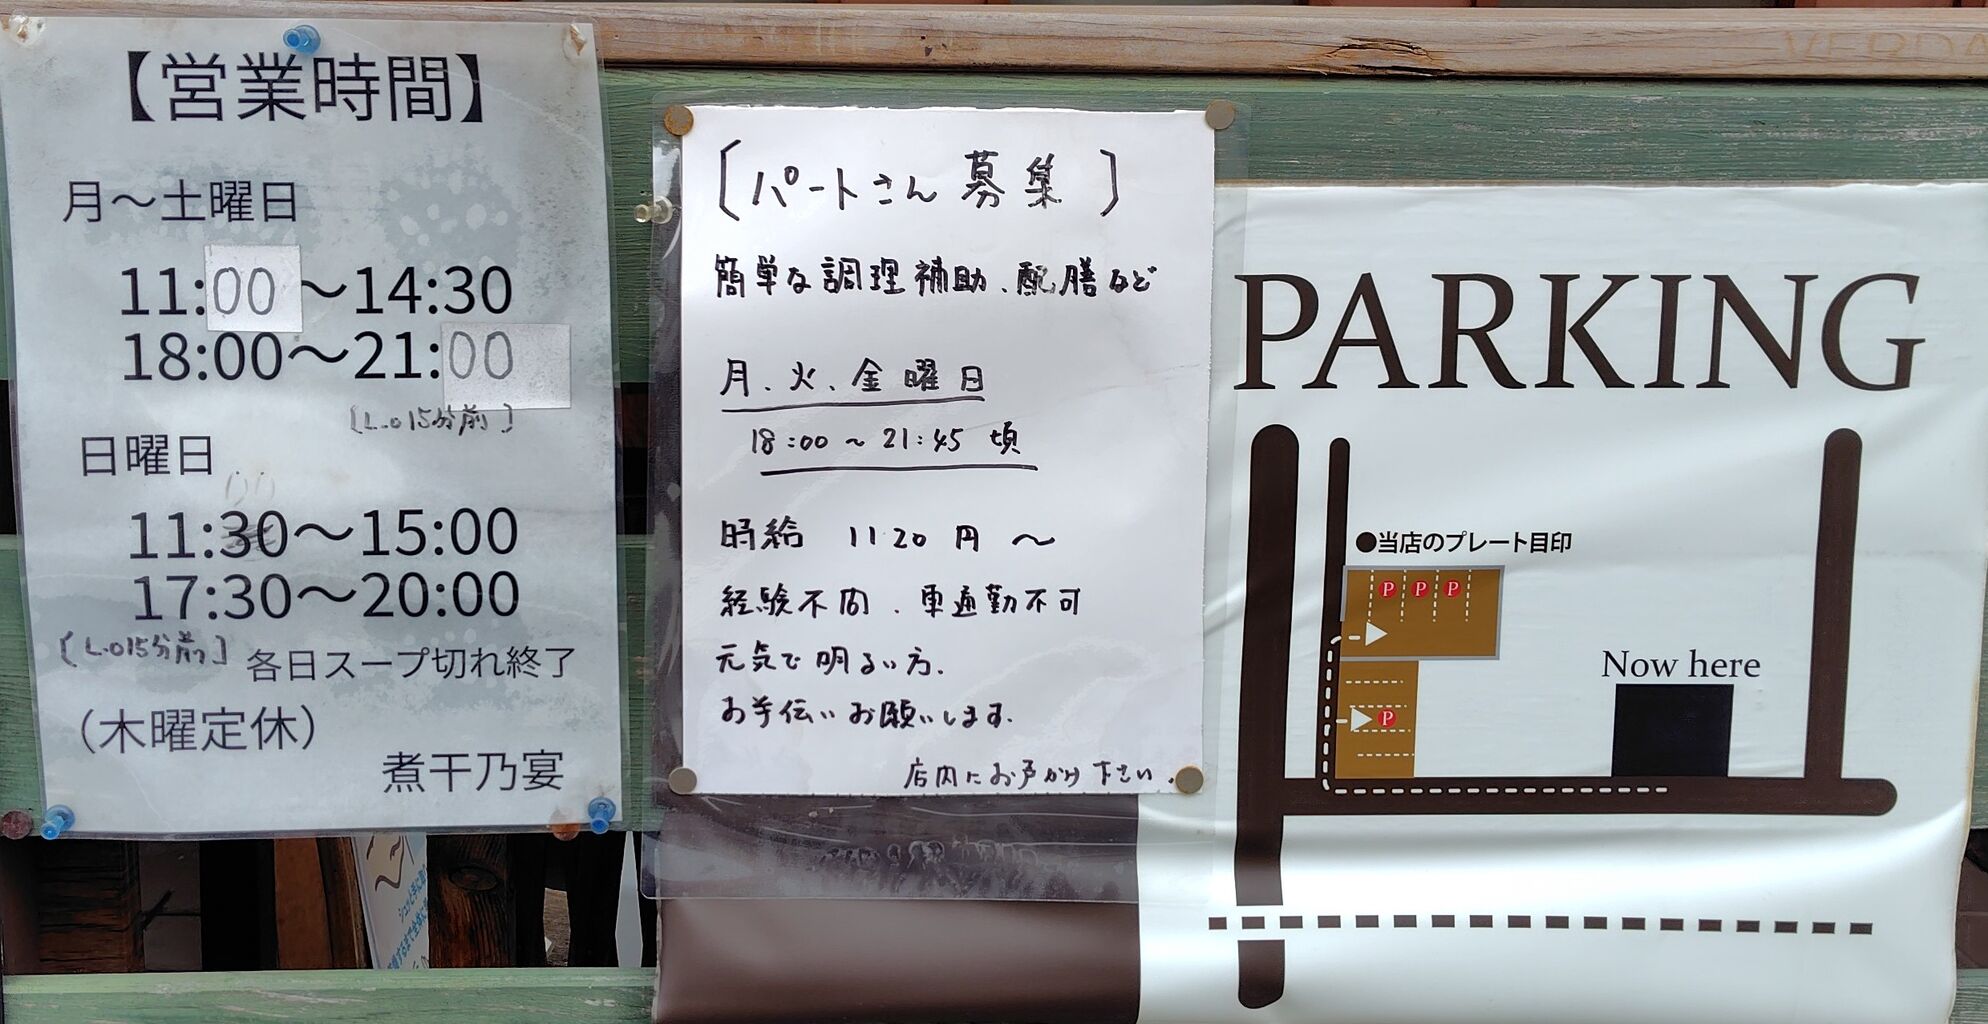 【営業時間】
月～土曜日
11:00～14:30
18:00～21:00
〔L.O15分前〕
日曜日
00
11:30～15:00
17:30～20:00
〔L.O15分前〕
各日スープ切れ終了
（木曜定休）
煮干乃宴
〔パートさん募集〕
簡単な調理補助、配膳など
月、火、金曜日
18:00～21:45頃
時給 1120円～
経験不問、車通勤不可
元気で明るい方.
お手伝いお願いします.
店内にお声かけ下さい.
PARKING
●当店のプレート目印
P P P
Now here
P